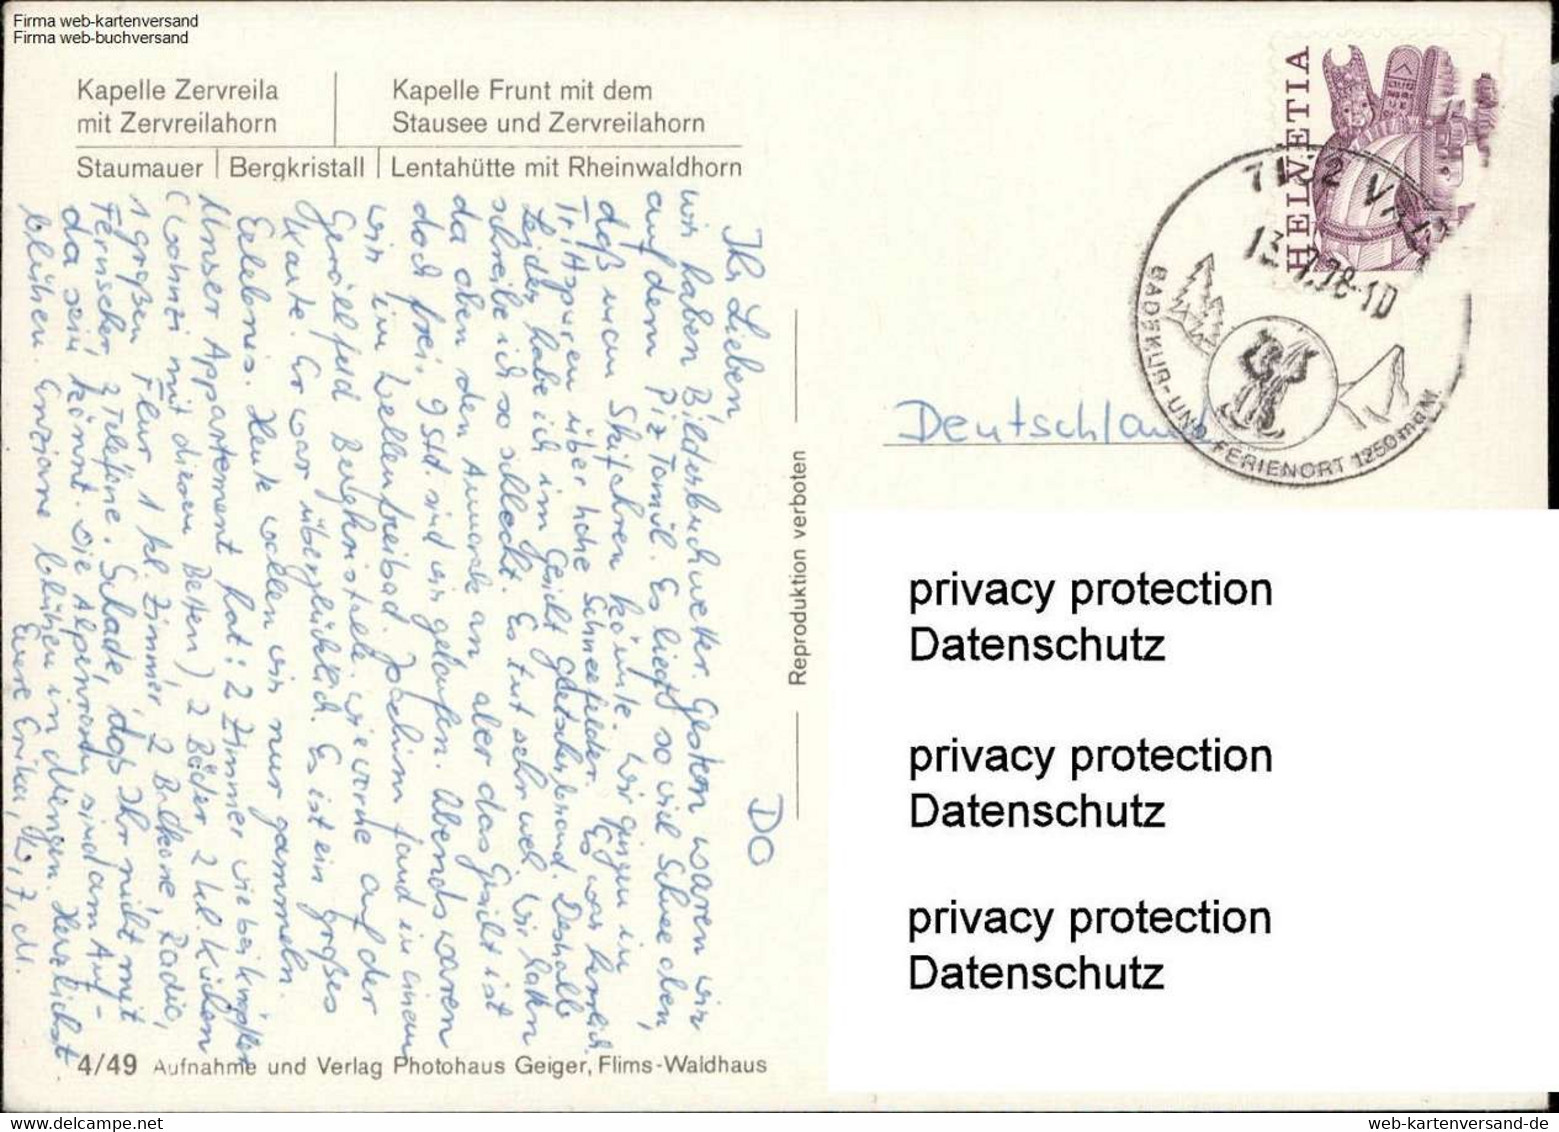 Firma web-kartenversand
Firma web-buchversand
Kapelle Zervreila
mit Zervreilahorn
Kapelle Frunt mit dem
Stausee und Zervreilahorn
Staumauer | Bergkristall | Lentahütte mit Rheinwaldhorn
DO
Ihr Lieben,
wir haben Bilderbuchwetter. Gestern waren wir
auf dem Piz Tomül. Es liegt so viel Schnee oben,
daß man Skifahren könnte. Wir gingen in
Trittspuren über hohe Schneefelder. Es war herrlich.
Leider habe ich im Gesicht Gletscherbrand. Deshalb
schreibe ich so schlecht. Es tut sehr weh. Wir hatten
da oben den Anorak an aber das Gesicht ist
doch frei. 9 Std. sind wir gelaufen. Abends waren
wir im Wellenfreibad. Joachim fand in einem
Geröllfeld Bergkristalle wie vorne auf der
Karte. Er war überglücklich. Es ist ein großes
Erlebnis. Heute wollen wir nur gammeln.
Unser Appartement hat: 2 Zimmer
(Wohnzi mit diesen Betten) 2 Bäder 2 kl. Küchen
1 großen Flur 1 kl. Zimmer, 2 Balkone, Radio,
Fernseher, 2 Telefone. Schade, daß Ihr nicht mit
da sein könnt. Die Alpenrosen sind am Auf-
blühen. Enziane blühen in Mengen. Herzlichst
Eure Erika, M.
Reproduktion verboten
4/49 Aufnahme und Verlag Photohaus Geiger, Flims-Waldhaus
HELVETIA
7132 VALS
13.7.78-10
BADEKUR- UND FERIENORT 1250 m ü M.
Deutschland
privacy protection
Datenschutz
privacy protection
Datenschutz
privacy protection
Datenschutz
web-kartenversand.com
web-kartenversand-de